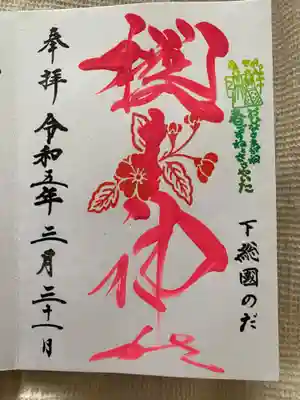 下総國のだ
櫻木神社
奉拝 令和五年三月三十一日